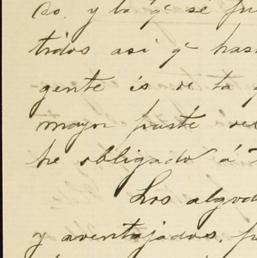 y la qe se
tidos asi qe has
gente is de la
mayor parte
he obligado á
Los algod
y aventajados, p